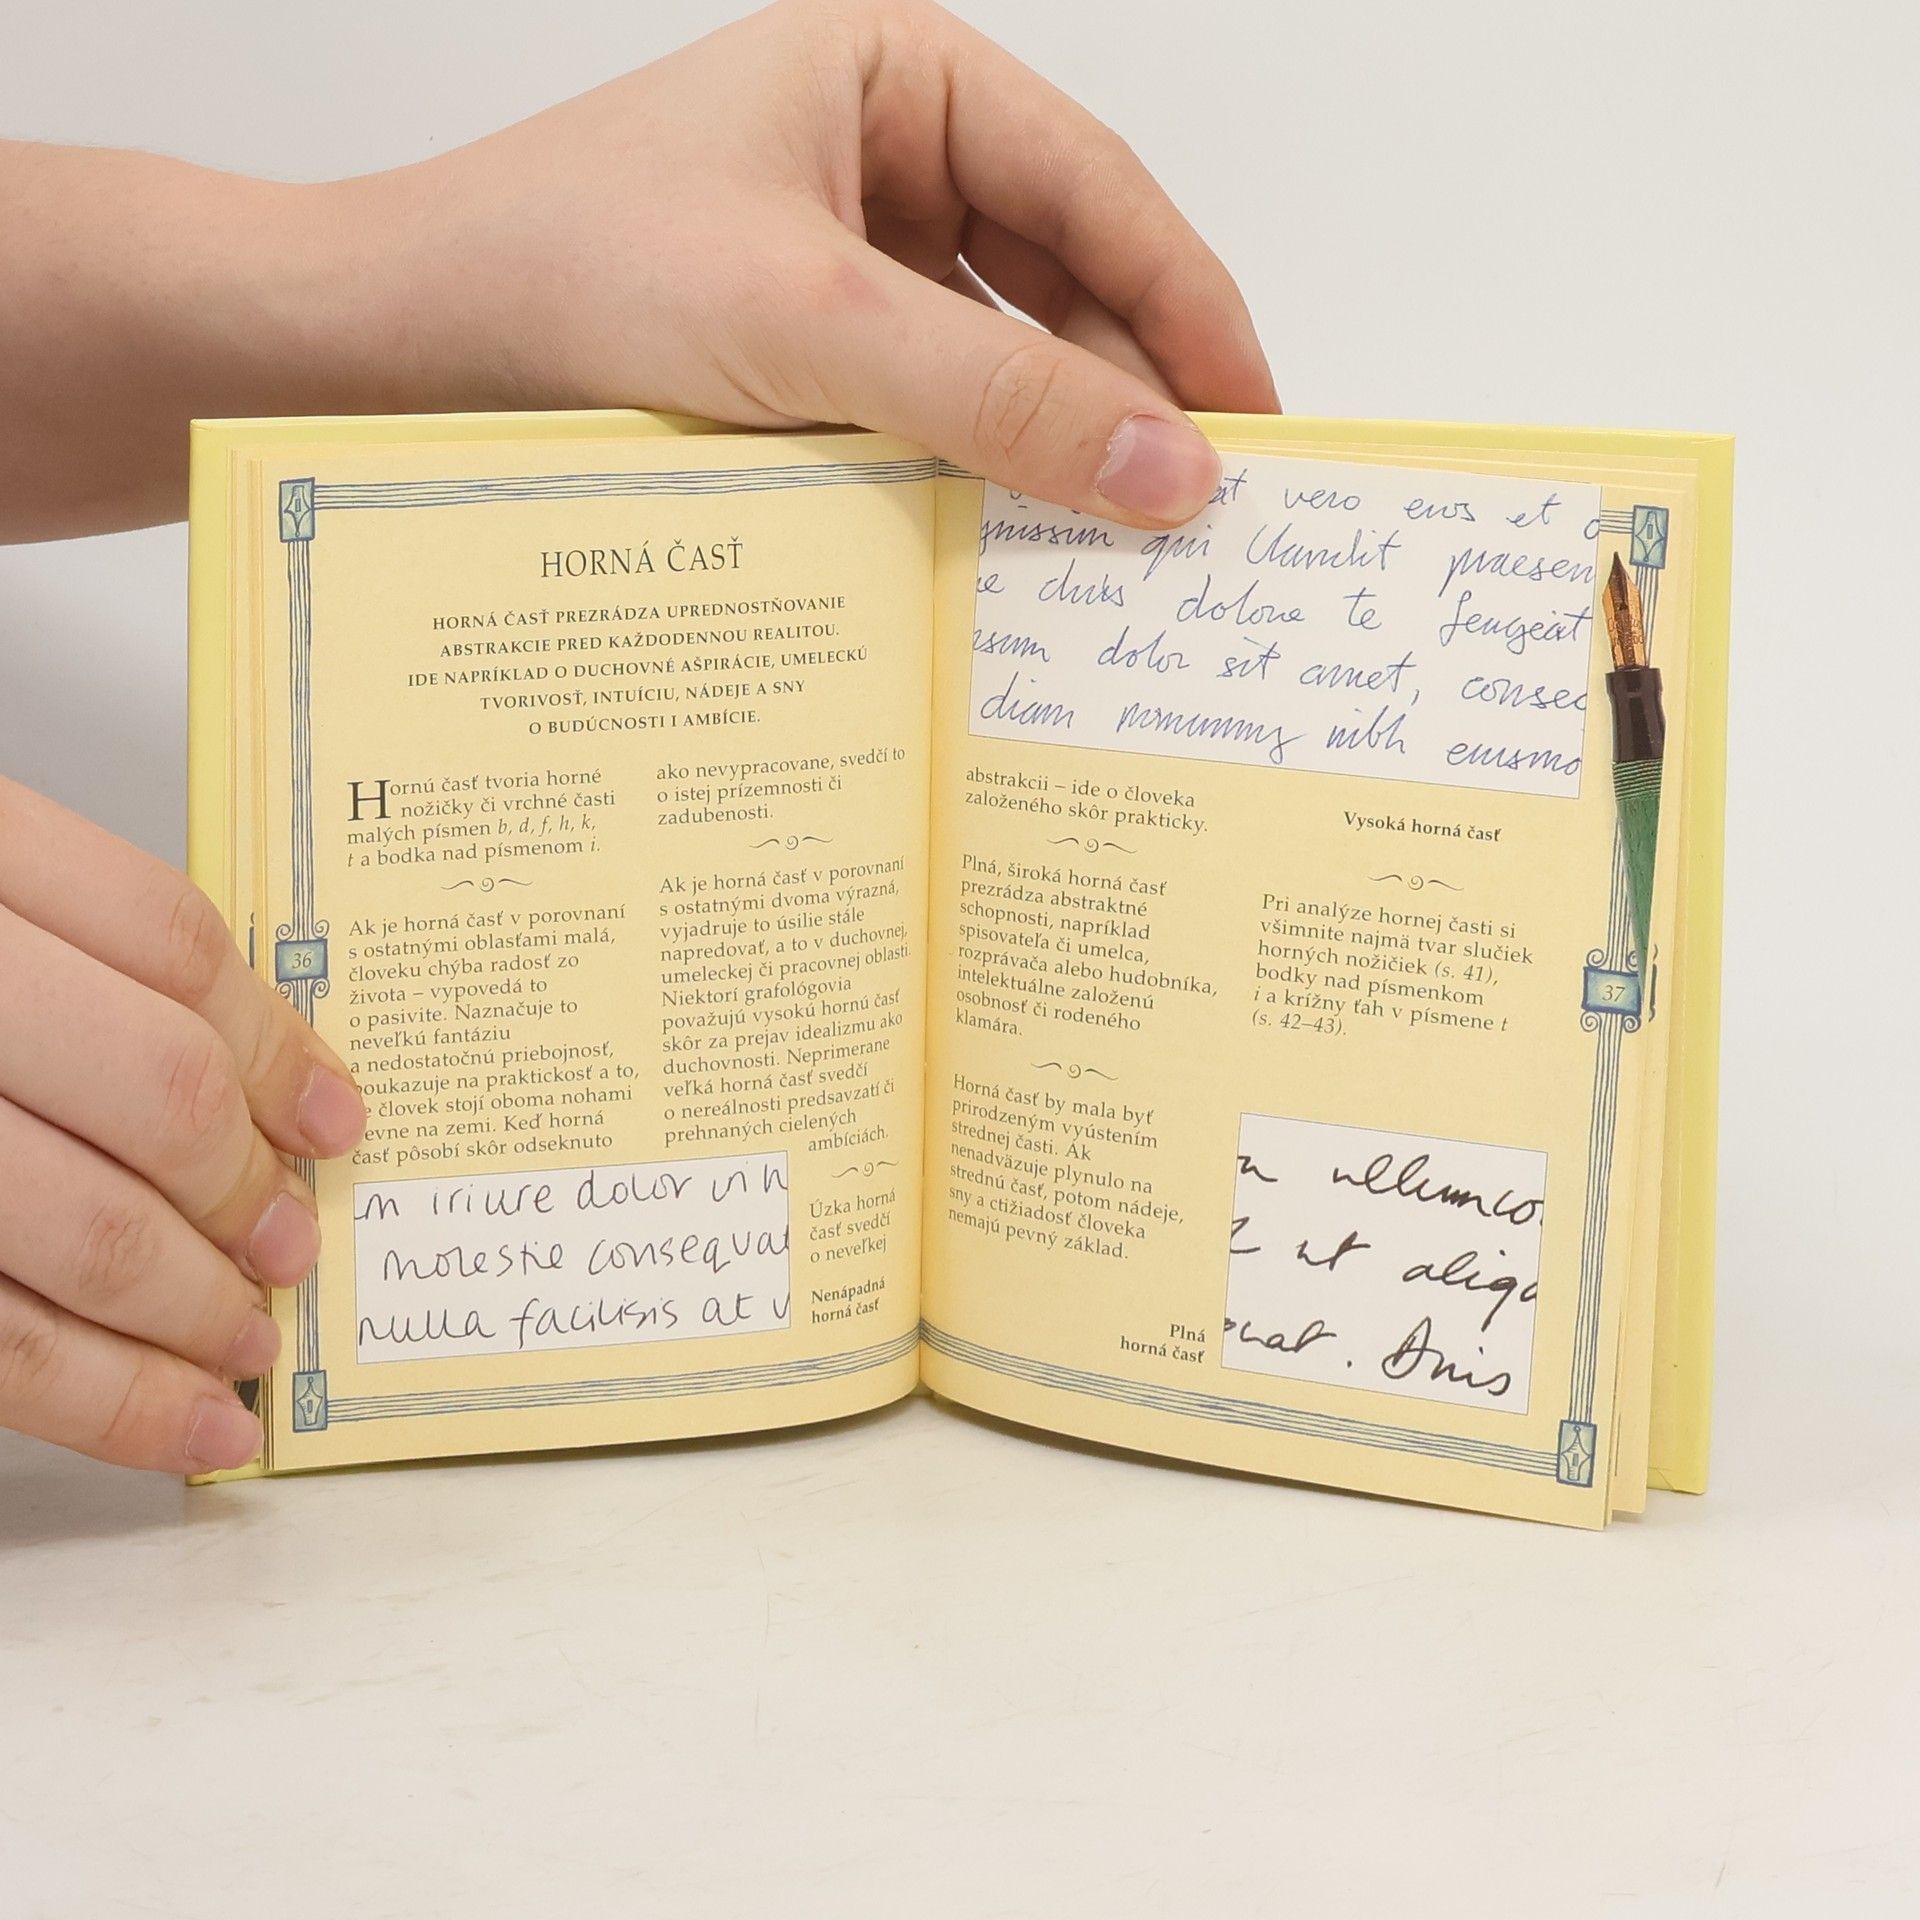 HORNÁ ČASŤ
HORNÁ ČASŤ PREZRÁDZA UPREDNOSTŇOVANIE
ABSTRAKCIE PRED KAŽDODENNOU REALITOU.
IDE NAPRÍKLAD O DUCHOVNÉ AŠPIRÁCIE, UMELECKÚ
TVORIVOSŤ, INTUÍCIU, NÁDEJE A SNY
O BUDÚCNOSTI I AMBÍCIE.
Hornú časť tvoria horné
nožičky či vrchné časti
malých písmen b, d, f, h, k,
t a bodka nad písmenom i.
Ak je horná časť v porovnaní
s ostatnými oblasťami malá,
človeku chýba radosť zo
života – vypovedá to
o pasivite. Naznačuje to
neveľkú fantáziu
a nedostatočnú priebojnosť,
poukazuje na praktickosť a to,
človek stojí oboma nohami
evne na zemi. Keď horná
časť pôsobí skôr odseknuto
ako nevypracovane, svedčí to
o istej prízemnosti či
zadubenosti.
Ak je horná časť v porovnaní
s ostatnými dvoma výrazná,
vyjadruje to úsilie stále
napredovať, a to v duchovnej,
umeleckej či pracovnej oblasti.
Niektorí grafológovia
považujú vysokú hornú časť
skôr za prejav idealizmu ako
duchovnosti. Neprimerane
veľká horná časť svedčí
o nereálnosti predsavzatí či
prehnaných cielených
ambíciách.
Úzka horná
časť svedčí
o neveľkej
m iriure dolor in h
molestie consequat
nulla facilisis at v
Nenápadná
horná časť
36
at vero eros et o
gnissim qui blandit praesen
e duis dolore te feugait
psum dolor sit amet, consec
diam nonummy nibh euismo
abstrakcii – ide o človeka
založeného skôr prakticky.
Plná, široká horná časť
prezrádza abstraktné
schopnosti, napríklad
spisovateľa či umelca,
rozprávača alebo hudobníka,
intelektuálne založenú
osobnosť či rodeného
klamára.
Horná časť by mala byť
prirodzeným vyústením
strednej časti. Ak
nenadväzuje plynulo na
strednú časť, potom nádeje,
sny a ctižiadosť človeka
nemajú pevný základ.
Vysoká horná časť
Pri analýze hornej časti si
všimnite najmä tvar slučiek
horných nožičiek (s. 41),
bodky nad písmenkom
i a krížny ťah v písmene t
(s. 42–43).
37
ullamco
ut aliqu
quat. Duis
Plná
horná časť